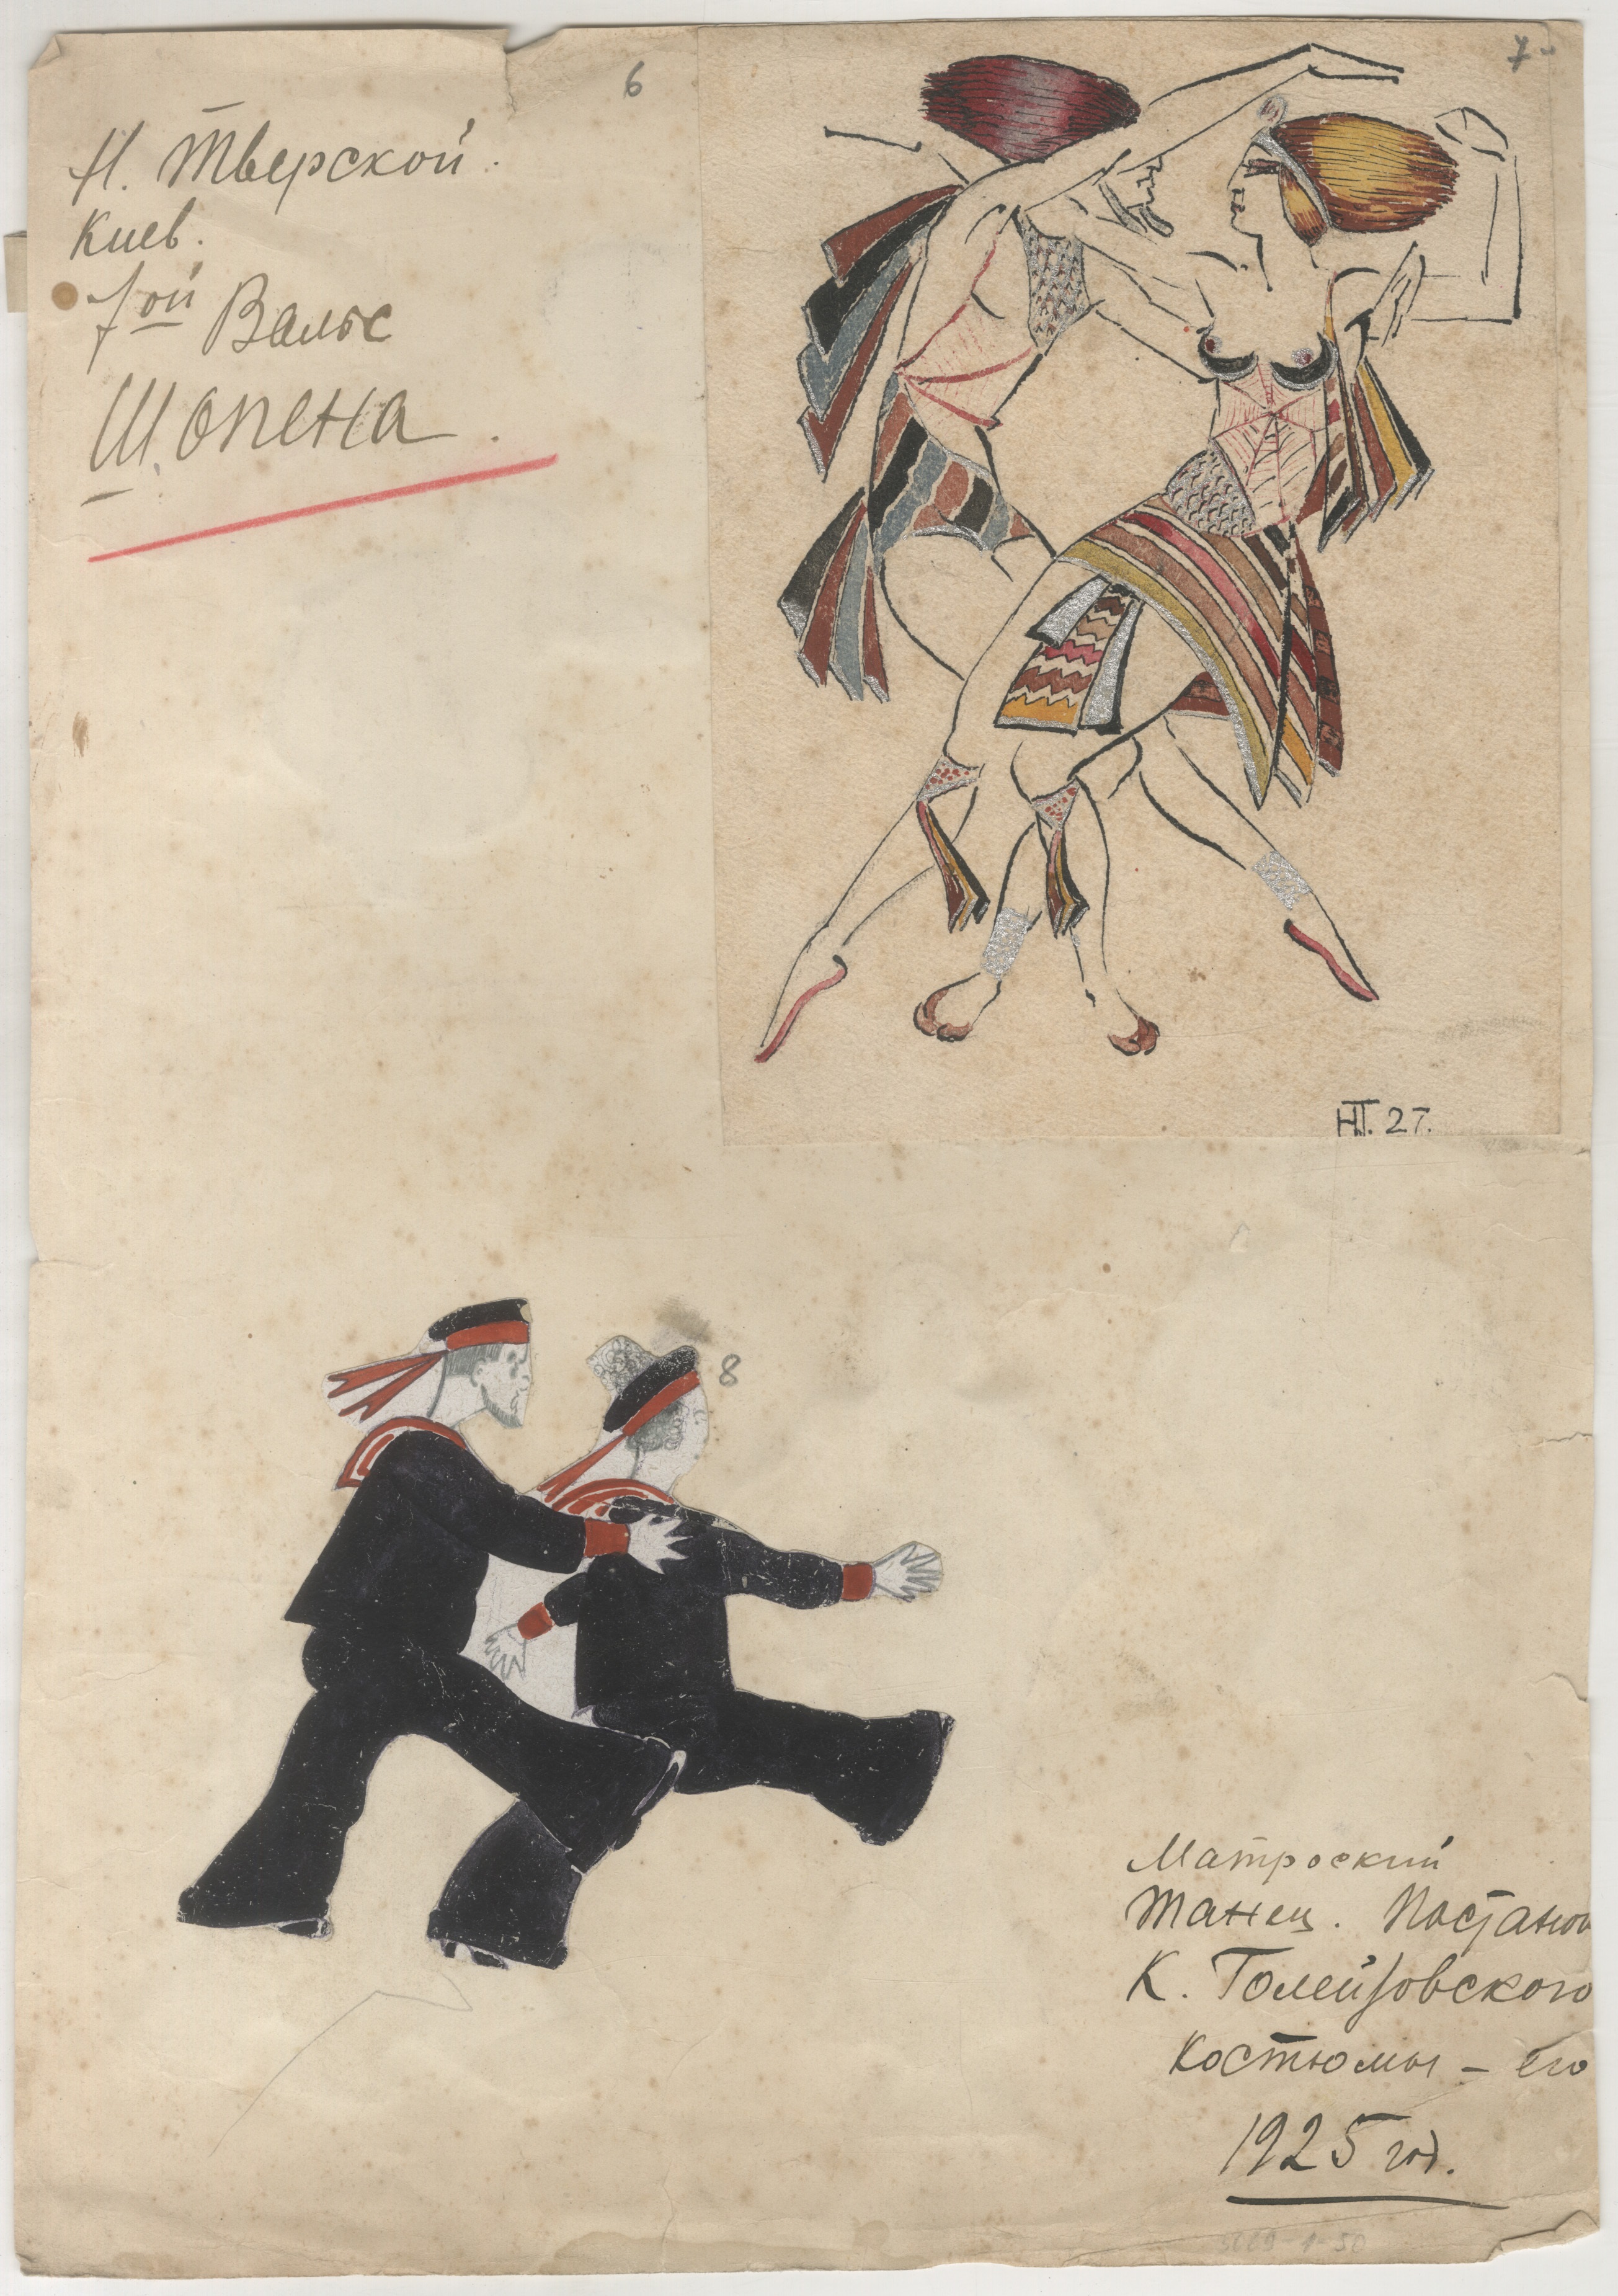 6
7
Н. Тверской.
Киев.
7ой Вальс
Шопена.
НТ. 27.
8
Матроский
Танец. Постанов
К. Голейзовского
Костюмы – его
1925 год.